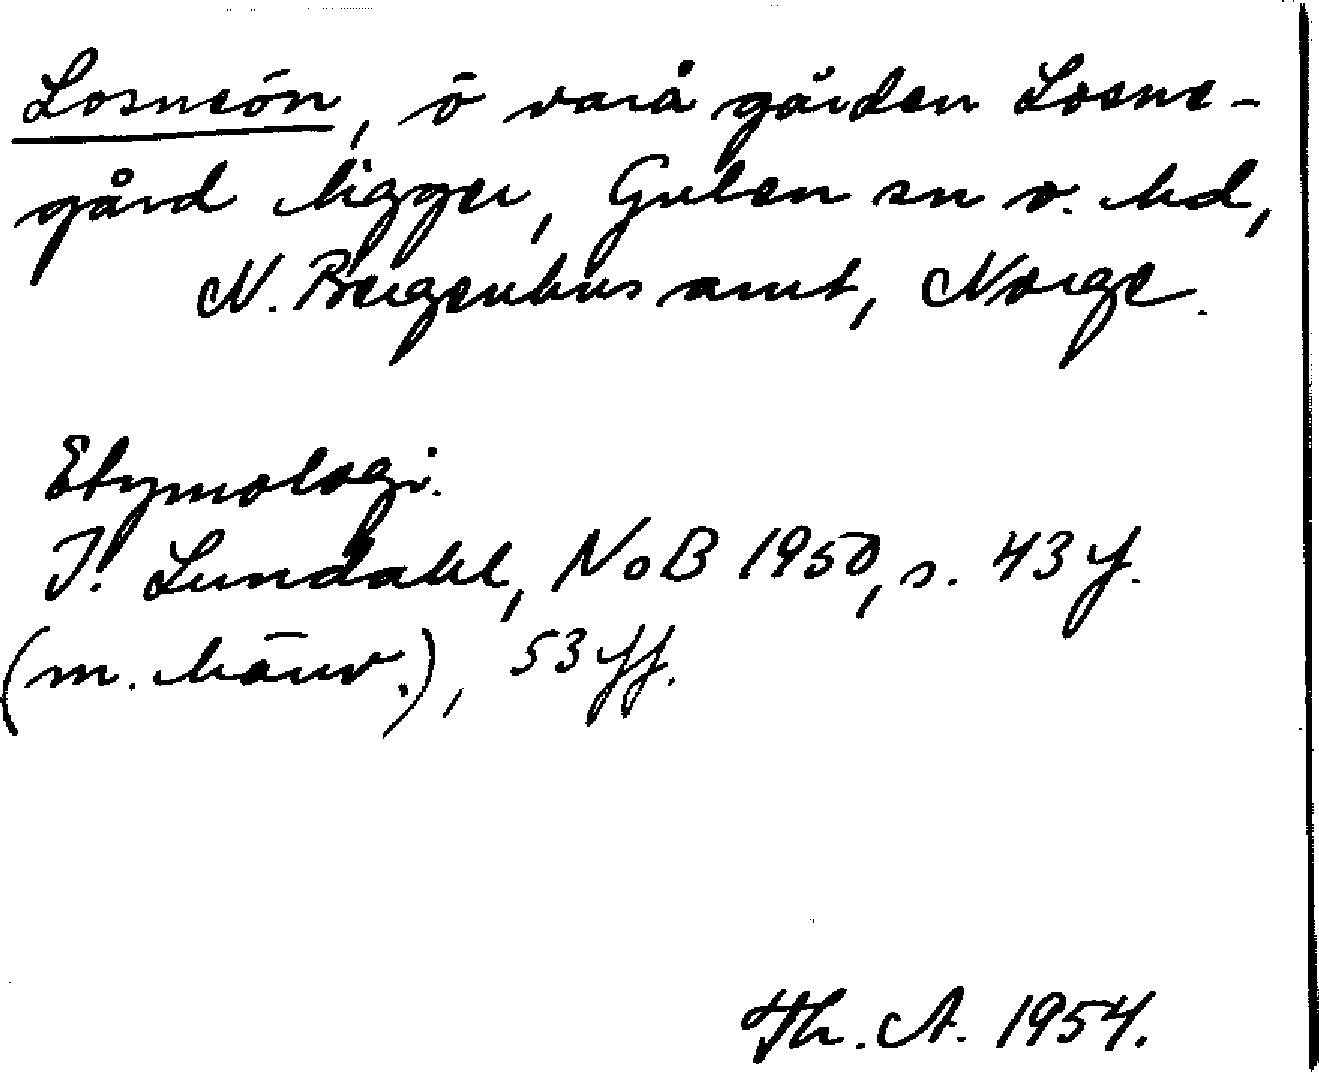 Losneön, ö varå gården Losne-
gård ligger, Gulen sn o. hd,
N. Bergenhus amt, Norge.
Etymologi.
I. Lundahl, NoB 1950, s. 43 f.
(m. hänv.), 53 ff.
Th. A. 1954.